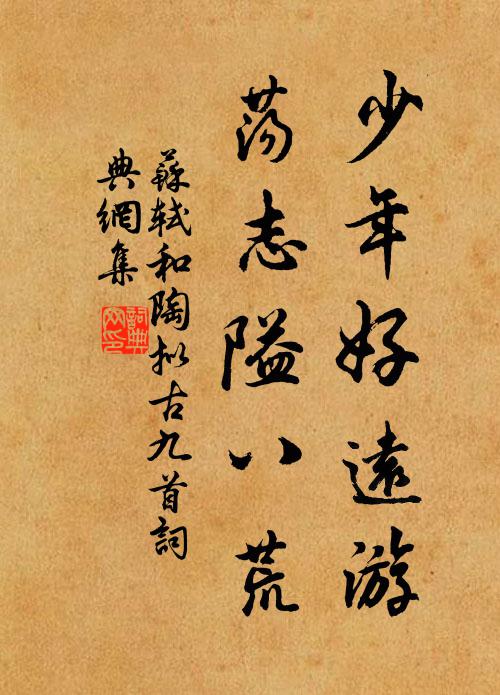 少年好遠游
蕩志隘八荒
蘇軾和陶擬古九首詞
典網集
詞典
网印